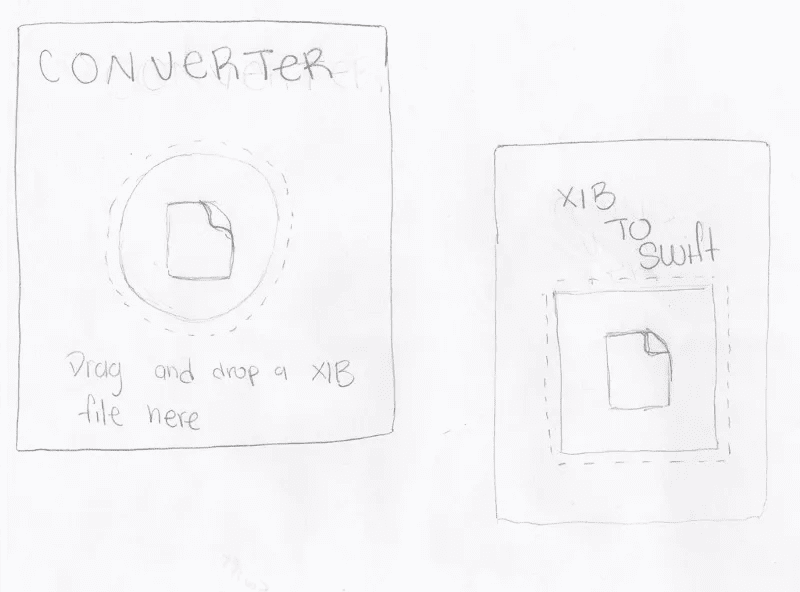 CONVERTER
Drag and drop a XIB
file here
XIB
TO
Swift